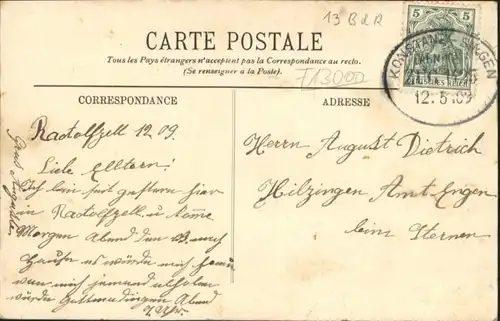 13 B d R
5 5
CARTE POSTALE
Tous les Pays étrangers n'acceptent pas la Correspondance au recto.
(Se renseigner à la Poste).
T13000
KONSTANZ
12.5.09
CORRESPONDANCE
ADRESSE
Radolfzell 12 09.
Liebe Elltern!
Ich bin seit gestern hier
in Radolfzell u. komme
Morgen Abend den 13. nach
Hause es würde mich freuen
wen mich jemand abholen
würde Abend
7 Uhr.
Herrn August Dietrich
Hilzingen Amt Engen
beim Sternen